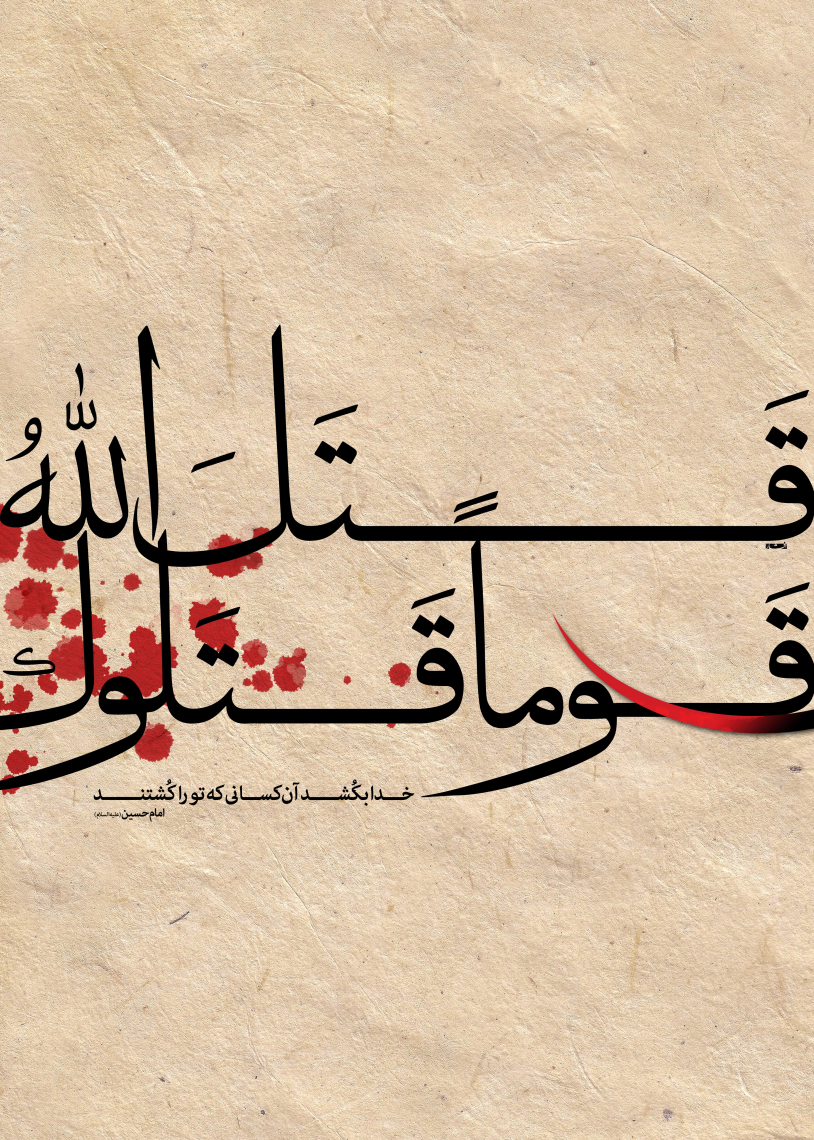 قَتَلَ اللهُ
قَوماً قَتَلوك
خدا بکُشد آن کسانی که تو را کُشتند
امام حسین (علیه السلام)